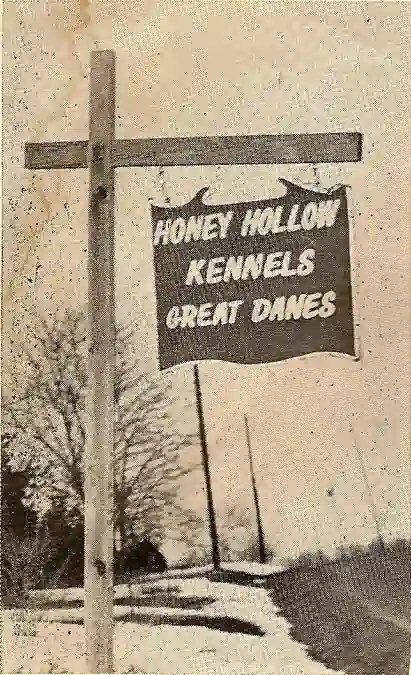 HONEY HOLLOW
KENNELS
GREAT DANES